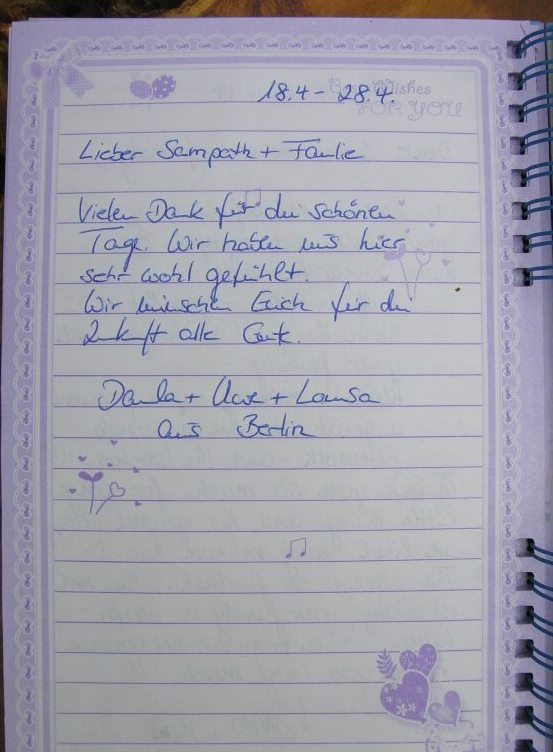 18.4 - 28.4.
Wishes
FOR YOU
Lieber Sampath + Familie
Vielen Dank für die schönen
Tage. Wir haben uns hier
sehr wohl gefühlt.
Wir wünschen Euch für die
Zukunft alles Gute.
+ Uwe + Louisa
aus Berlin